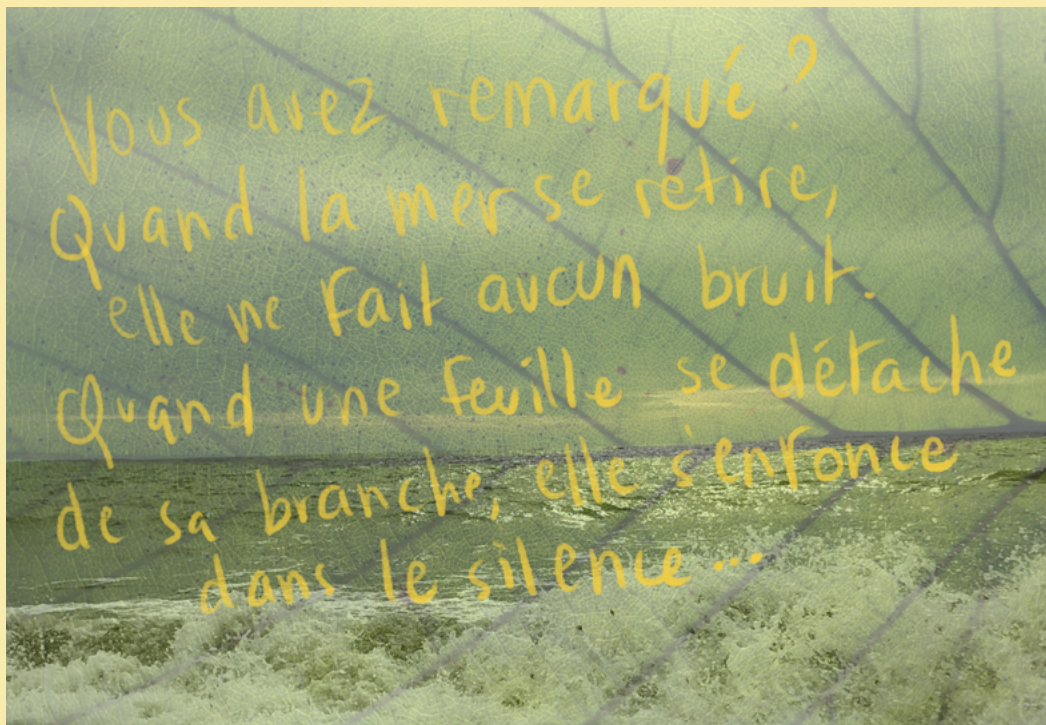 Vous avez remarqué ?
Quand la mer se retire,
elle ne fait aucun bruit.
Quand une feuille se détache
de sa branche, elle s'enfonce
dans le silence...